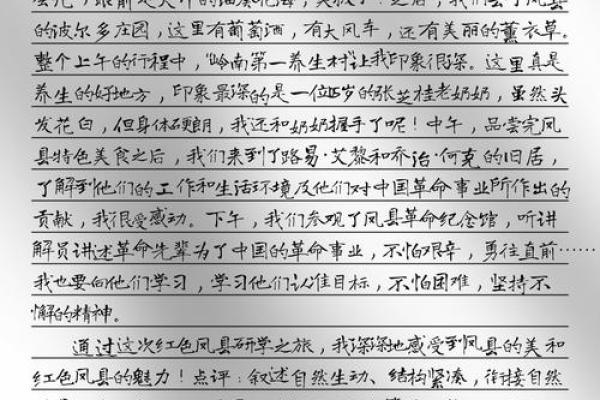 的波尔多庄园，这里有葡萄酒，有大风车，还有美丽的薰衣草。
整个上午的行程中，“岭南第一养生村”让我印象很深。这里真是
养生的好地方，印象最深的是一位岁的张芝桂老奶奶，虽然头
发花白，但身体硬朗，我还和奶奶握手了呢！中午，品尝完凤
县特色美食之后，我们来到了路易·艾黎和乔治·何克的旧居，
了解到他们的工作和生活环境及他们对中国革命事业所作出的
贡献，我很受感动。下午，我们参观了凤县革命纪念馆，听讲
解员讲述革命先辈为了中国的革命事业，不怕艰辛，勇往直前……
我也要向他们学习，学习他们认准目标，不怕困难，坚持不
懈的精神。
通过这次红色凤县研学之旅，我深深地感受到凤县的美和
红色凤县的魅力！点评：叙述自然生动、结构紧凑，衔接自然